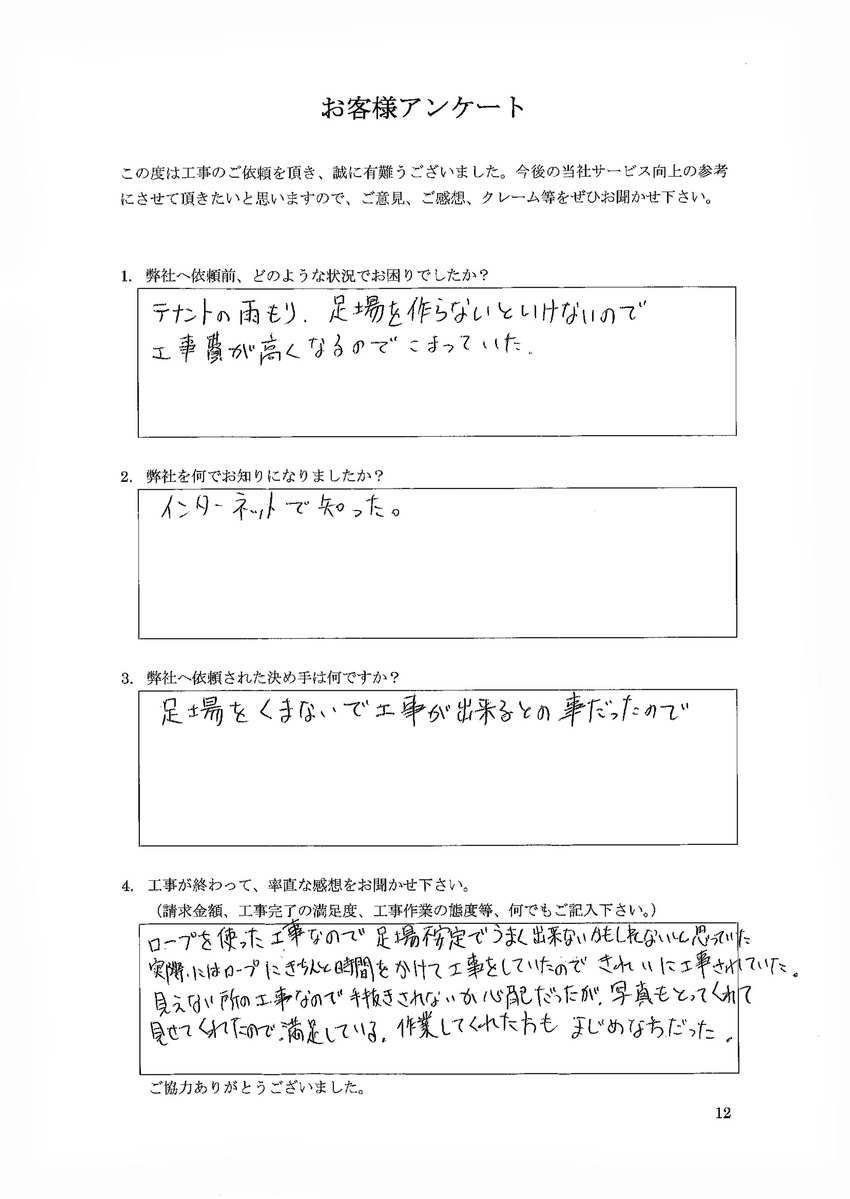 お客様アンケート
この度は工事のご依頼を頂き、誠に有難うございました。今後の当社サービス向上の参考
にさせて頂きたいと思いますので、ご意見、ご感想、クレーム等をぜひお聞かせ下さい。
1. 弊社へ依頼前、どのような状況でお困りでしたか?
テナントの雨もり、足場を作らないといけないので
工事費が高くなるのでこまっていた。
2. 弊社を何でお知りになりましたか?
インターネットで知った。
3. 弊社へ依頼された決め手は何ですか?
足場をくまないで工事が出来るとの事だったので
4. 工事が終わって、率直な感想をお聞かせ下さい。
(請求金額、工事完了の満足度、工事作業の態度等、何でもご記入下さい。)
ロープを使った工事なので足場不安定でうまく出来ないかもしれないと思っていた
実際にはロープにきちんと時間をかけて工事をしていたのできれいに工事されていた。
見えない所の工事なので手抜きされないか心配だったが、写真もとってくれて
見せてくれたので、満足している。作業してくれた方もまじめな方だった。
ご協力ありがとうございました。
12